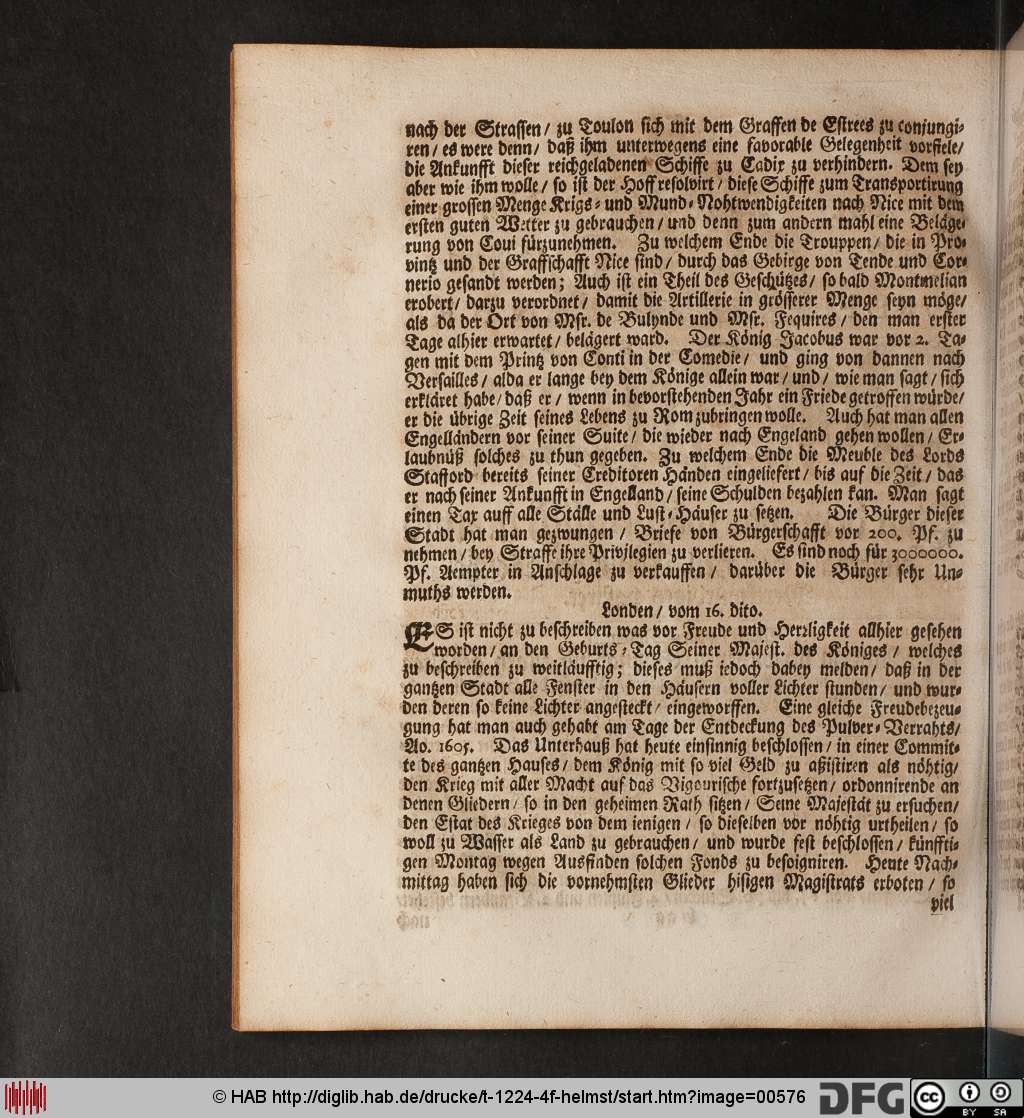 nach der Strassen / zu Toulon sich mit dem Graffen de Estrees zu conjungi-
ren / es were denn / daß ihm unterwegens eine favorable Gelegenheit vorfiele /
die Ankunfft dieser reichgeladenen Schiffe zu Cadix zu verhindern. Dem sey
aber wie ihm wolle / so ist der Hoff resolvirt / diese Schiffe zum Transportirung
einer grossen Menge Krigs- und Mund-Nohtwendigkeiten nach Nice mit dem
ersten guten Wetter zu gebrauchen / und denn zum andern mahl eine Beläge-
rung von Coui fürzunehmen. Zu welchem Ende die Trouppen / die in Pro-
vintz und der Graffschafft Nice sind / durch das Gebirge von Tende und Cor-
nerio gesandt werden; Auch ist ein Theil des Geschützes / so bald Montmelian
erobert / darzu verordnet / damit die Artillerie in grösserer Menge seyn möge /
als da der Ort von Msr. de Bulynde und Msr. Fequires / den man erster
Tage alhier erwartet / belägert ward. Der König Jacobus war vor 2. Ta-
gen mit dem Printz von Conti in der Comedie / und ging von dannen nach
Versailles / alda er lange bey dem Könige allein war / und / wie man sagt / sich
erkläret habe / daß er / wenn in bevorstehenden Jahr ein Friede getroffen würde /
er die übrige Zeit seines Lebens zu Rom zubringen wolle. Auch hat man allen
Engelländern vor seiner Suite / die wieder nach Engeland gehen wollen / Er-
laubnüß solches zu thun gegeben. Zu welchem Ende die Meuble des Lords
Stafford bereits seiner Creditoren Händen eingeliefert / bis auf die Zeit / das
er nach seiner Ankunfft in Engelland / seine Schulden bezahlen kan. Man sagt
einen Tax auff alle Ställe und Lust-Häuser zu setzen. Die Bürger dieser
Stadt hat man gezwungen / Briefe von Bürgerschafft vor 200. Pf. zu
nehmen / bey Straffe ihre Privilegien zu verlieren. Es sind noch für 3000000.
Pf. Aempter in Anschlage zu verkauffen / darüber die Bürger sehr Un-
muths werden.
Londen / vom 16. dito.
ES ist nicht zu beschreiben was vor Freude und Herrligkeit allhier gesehen
worden / an den Geburts-Tag Seiner Majest. des Königes / welches
zu beschreiben zu weitläufftig; dieses muß iedoch dabey melden / daß in der
gantzen Stadt alle Fenster in den Häusern voller Lichter stunden / und wur-
den deren so keine Lichter angesteckt / eingeworffen. Eine gleiche Freudebezeu-
gung hat man auch gehabt am Tage der Entdeckung des Pulver-Verrahts /
Ao. 1605. Das Unterhauß hat heute einsinnig beschlossen / in einer Commit-
te des gantzen Hauses / dem König mit so viel Geld zu aßistiren als nöhtig /
den Krieg mit aller Macht auf das Vigourische fortzusetzen / ordonnirende an
denen Gliedern / so in den geheimen Rath sitzen / Seine Majestät zu ersuchen /
den Estat des Krieges von dem ienigen / so dieselben vor nöhtig urtheilen / so
woll zu Wasser als Land zu gebrauchen / und wurde fest beschlossen / künffti-
gen Montag wegen Ausfinden solchen Fonds zu besoigniren. Heute Nach-
mittag haben sich die vornehmsten Glieder hisigen Magistrats erboten / so
viel
© HAB http://diglib.hab.de/drucke/t-1224-4f-helmst/start.htm?image=00576
DFG
cc
BY SA